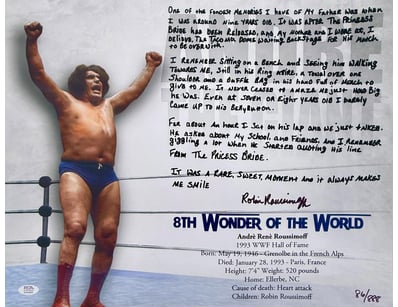 One of the fondest memories I have of my Father was when
I was around nine years old. It was after The Princess
Bride has been released, and my mother and I were at, I
believe, The Tacoma Dome waiting backstage for his match
to be over with.
I remember sitting on a bench and seeing him walking
towards me, still in his ring attire, a towel over one
shoulder and a duffle bag in his hand full of merch to
give to me. It never ceased to amaze me just how big
he was. Even at seven or eight years old I barely
came up to his
For about an hour I sat on his lap and we just talked.
He asked about my school, and friends, and I remember
giggling a lot when he started quoting his line
from The Pricess Bride.
It was a rare, sweet, moment and it always makes
me smile
Robin Roussimoff
8TH WONDER OF THE WORLD
Andrè Renè Roussimoff
1993 WWF Hall of Fame
Born: May 19, 1946 - Grenolbe in the French Alps
Died: January 28, 1993 - Paris, France
Height: 7'4" Weight: 520 pounds
Home: Ellerbe, NC
Cause of death: Heart attack
Children: Robin Roussimoff
86/888